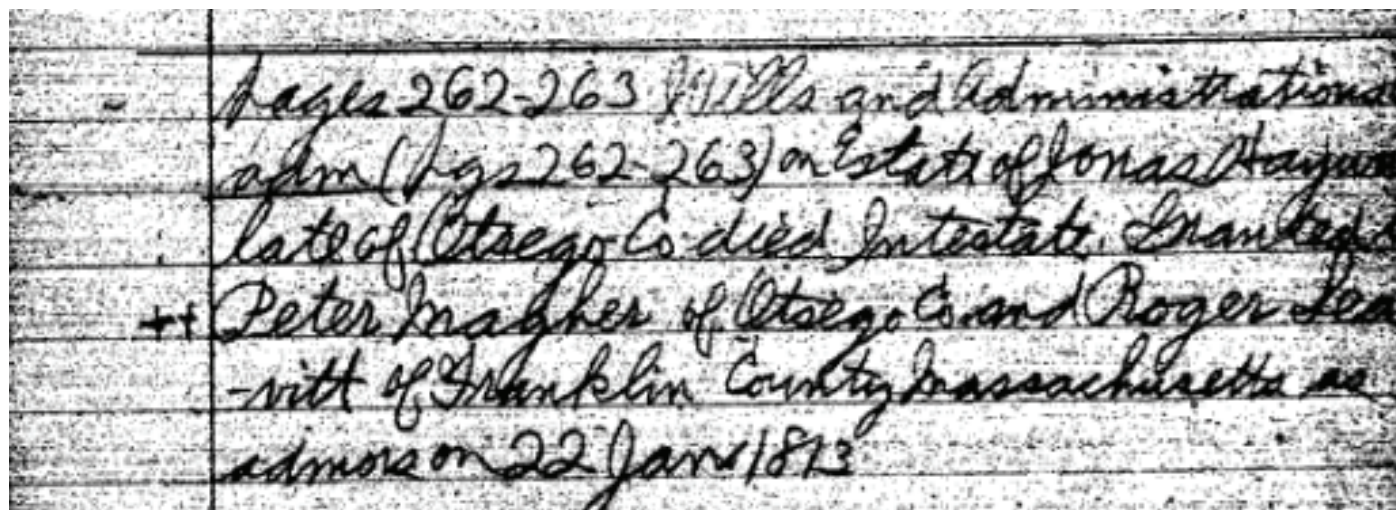 pages 262-263 Wills and Administrations
adm (pgs 262-263) on Estate of Jonas
late of Otsego Co died Intestate. Granted
Peter Magher of Otsego Co. and Roger Lea
-vitt of Franklin County Massachusetts as
admors on 22 Jany 1813